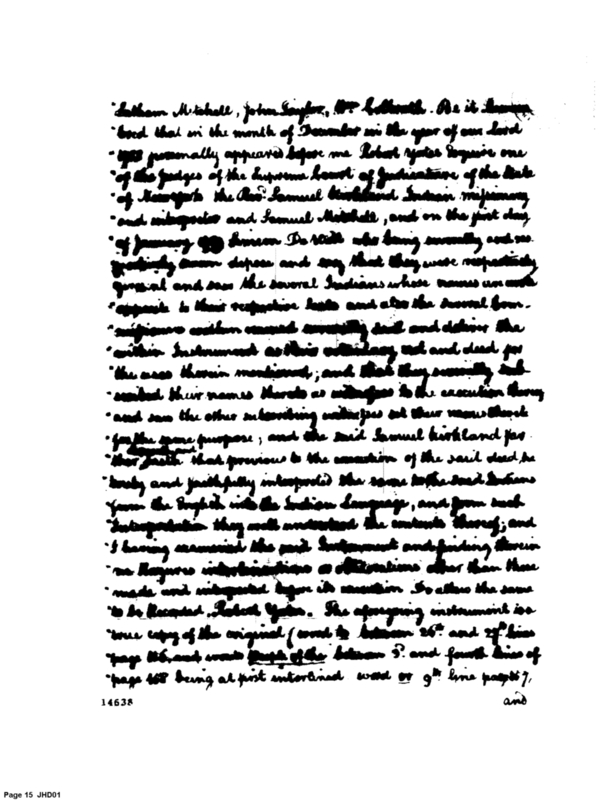 "Latham Mitchell, John Taylor, Wm Colbreath. Be it Remem
"bred that in the month of December in the year of our Lord
" personally appeared before me Robert Yates Esquire one
"of the Judges of the Supreme Court of Judicature of the State
"of New York the Revd Samuel Kirkland Indian missionary
"and interpreter and Samuel Mitchell, and on the first day
"of January Simeon De Witt who being severally and res
"pectively sworn depose and say that they were respectively
"present and saw the several Indians whose names are
"opposite to their respective seals and also the several Com-
"missioners within named severally seal and deliver the
"within Instrument as their voluntary act and deed for
"the uses therein mentioned; and that they severally sub
"scribed their names thereto as witnesses to the execution thereof
"and saw the other subscribing witnesses set their names thereto
"for the same purpose; and the said Samuel Kirkland fur
"ther saith that previous to the execution of the said deed he
"truly and faithfully interpreted the same to the said Indians
"from the English into the Indian Language, and from such
"Interpretation they well understood the contents thereof; and
"I having examined the said Instrument and finding therein
"no Erazures interlineations or obliterations other than those
"made and interpreted before its execution Do allow the same
"to be Recorded. Robert Yates. The aforegoing instrument is a
"true copy of the original (word to between 26th and 27th lines
"page 166, and words people of the between 3d and fourth lines of
"page 168 being at first interlined word or 9th line page 167,
14638
and
Page 15 JHD01